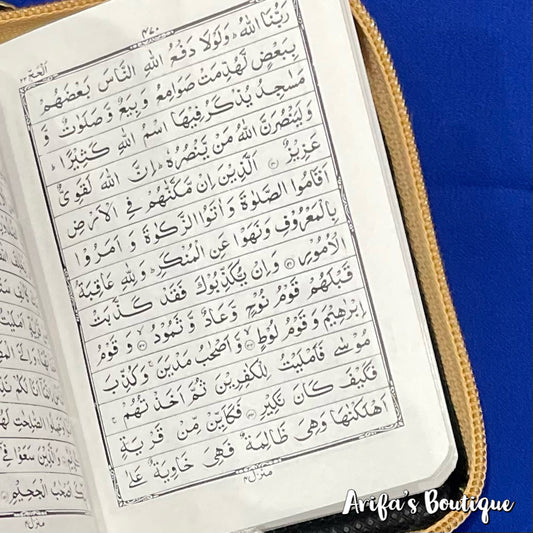 ٤٧٠
اَلْحَجّ ٢٢
رَبُّنَا اللّٰهُ ؕ وَلَوْلَا دَفْعُ اللّٰهِ النَّاسَ بَعْضَهُمْ
بِبَعْضٍ لَّهُدِّمَتْ صَوَامِعُ وَبِيَعٌ وَّصَلَوٰتٌ وَّ
مَسٰجِدُ يُذْكَرُ فِيْهَا اسْمُ اللّٰهِ كَثِيْرًا ؕ
وَلَيَنْصُرَنَّ اللّٰهُ مَنْ يَّنْصُرُهٗ ؕ اِنَّ اللّٰهَ لَقَوِيٌّ
عَزِيْزٌ ﴿٤٠﴾ اَلَّذِيْنَ اِنْ مَّكَّنّٰهُمْ فِي الْاَرْضِ
اَقَامُوا الصَّلٰوةَ وَاٰتَوُا الزَّكٰوةَ وَاَمَرُوْا
بِالْمَعْرُوْفِ وَنَهَوْا عَنِ الْمُنْكَرِ ؕ وَلِلّٰهِ عَاقِبَةُ
الْاُمُوْرِ ﴿٤١﴾ وَاِنْ يُّكَذِّبُوْكَ فَقَدْ كَذَّبَتْ
قَبْلَهُمْ قَوْمُ نُوْحٍ وَّعَادٌ وَّثَمُوْدُ ﴿٤٢﴾ وَقَوْمُ
اِبْرٰهِيْمَ وَقَوْمُ لُوْطٍ ﴿٤٣﴾ وَّاَصْحٰبُ مَدْيَنَ ۚ وَكُذِّبَ
مُوْسٰى فَاَمْلَيْتُ لِلْكٰفِرِيْنَ ثُمَّ اَخَذْتُهُمْ ۚ
فَكَيْفَ كَانَ نَكِيْرِ ﴿٤٤﴾ فَكَاَيِّنْ مِّنْ قَرْيَةٍ
اَهْلَكْنٰهَا وَهِيَ ظَالِمَةٌ فَهِيَ خَاوِيَةٌ عَلٰى
منزل ٤
Arifa's Boutique